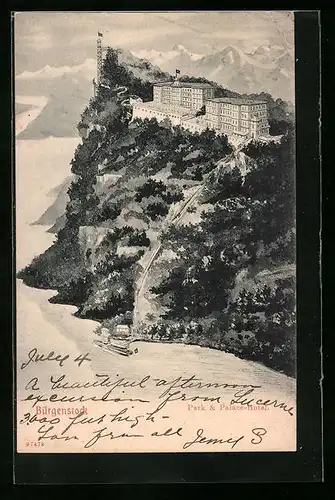 July 4
A beautiful afternoon
excursion from Lucerne
Bürgenstock
Park & Palace-Hotel.
3000 feet high -
from all
97474